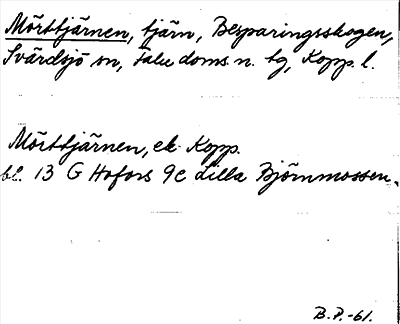 Mörttjärnen, tjärn, Besparingsskogen,
Svärdsjö sn, Falu doms. n. tg, Kopp. l.
Mörttjärnen, ek Kopp.
bl. 13 G Hofors 9c Lilla Björnmossen.
B.P.-61.